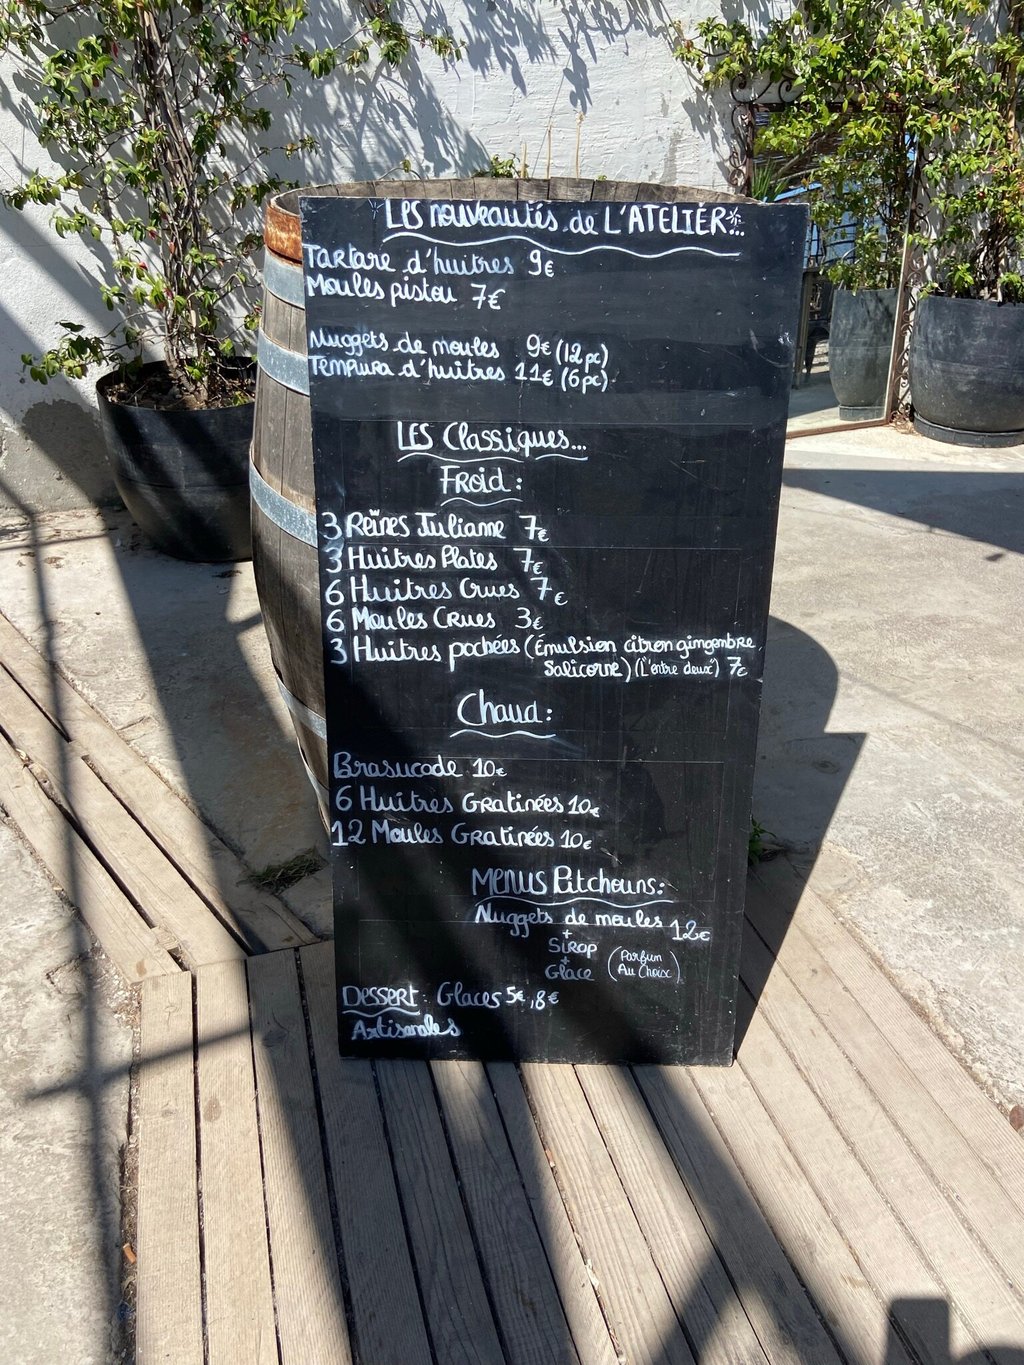 Les nouveautés de L'ATELIER...
Tartare d'huitres 9€
Moules pistou 7€
Nuggets de moules 9€ (12pc)
Tempura d'huitres 11€ (6pc)
Les Classiques...
Froid :
3 Reines Julianne 7€
3 Huitres Plates 7€
6 Huitres Crues 7€
6 Moules Crues 3€
3 Huitres pochées (Émulsion citron gingembre,
Salicorne) (L'entre deux") 7€
Chaud :
Brasucade 10€
6 Huitres Gratinées 10€
12 Moules Gratinées 10€
Menus Pitchouns :
Nuggets de moules 12€
+
Sirop
+
Glace (Parfum
Au Choix)
Dessert : Glaces 5€, 8€
Artisanales